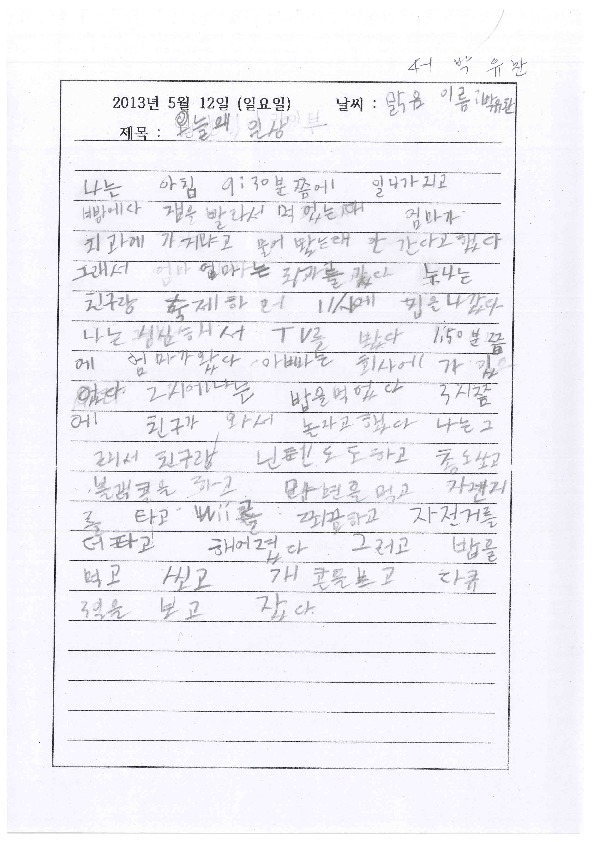 서 박유찬
2013년 5월 12일 (일요일) 날씨 : 맑음 이름 : 박유찬
제목 : 오늘왜 일상
나는 아침 9:30분쯤에 일나가지고
잼을 발라서 먹있는데 엄마가
치과에 가자냐고 물어 밨는대 안 간다고 했다
그래서 엄마 엄마는 치과를 갔다 누나는
친구랑 축제하러 11시에 집을 나갔다
나는 심심해서 TV를 봤다 1:50분 쯤
에 엄마가 왔다 아빠는 회사에 가 있
었다. 2시에 나는 밥을 먹었다 3시쯤
에 친구가 와서 논라고 했다 나는 그
래서 친구랑 닌텐도도 하고 총도 쏘고
블랙홀을 하고 라면을 먹고 자전거
를 타고 Wii를 쪼끔하고 자전거를
더 타고 해어졌다 그러고 밥을
먹고 씻고 개콘을 보고 다큐
3일을 보고 잤다.